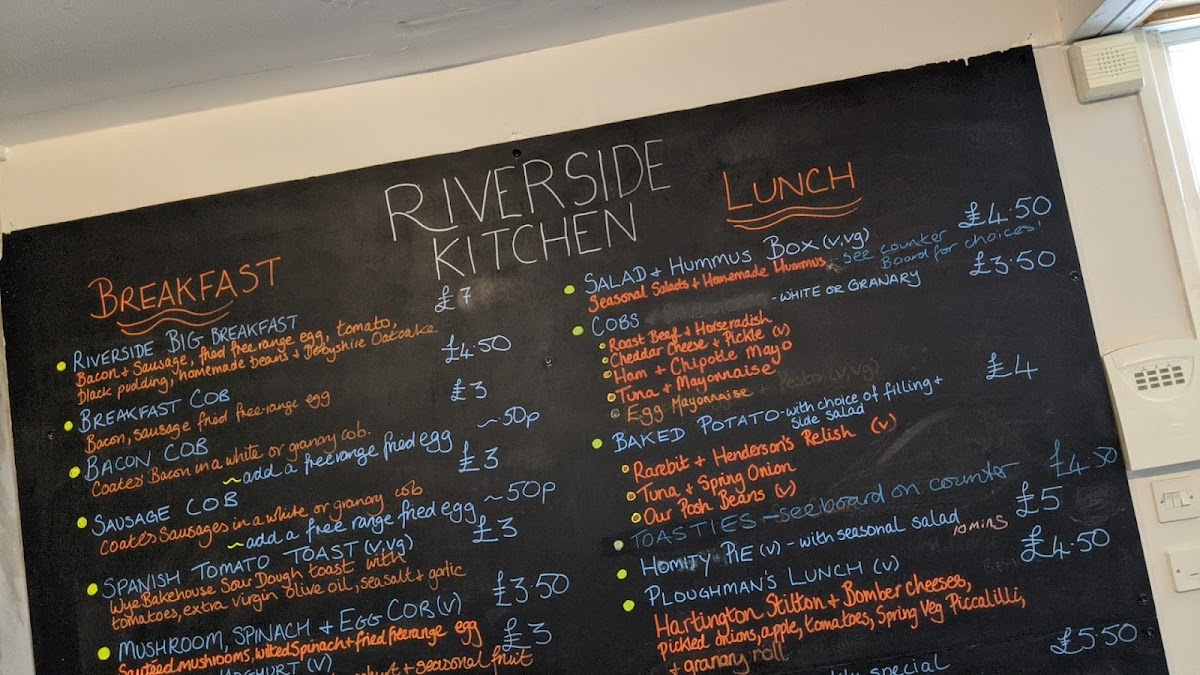 RIVERSIDE
KITCHEN
BREAKFAST
RIVERSIDE BIG BREAKFAST £7
Bacon + Sausage, fried free range egg, tomato,
black pudding, homemade beans + Debyshire Oatcake
BREAKFAST COB £4.50
Bacon, sausage fried free-range egg
BACON COB £3
Coates' Bacon in a white or granary cob.
~add a freerange fried egg ~50p
SAUSAGE COB £3
Coates Sausages in a white or granary cob
~add a free range fried egg ~50p
SPANISH TOMATO TOAST (v,vg) £3
Wye Bakehouse Sour Dough toast with
tomatoes, extra virgin olive oil, seasalt + garlic
MUSHROOM, SPINACH + EGG COB (v) £3.50
Sauteed mushrooms, wilted Spinach + fried freerange egg
YOGHURT (v) £3
+ seasonal fruit
LUNCH
SALAD + HUMMUS BOX (v,vg) £4.50
Seasonal Salads + Homemade Hummus - see counter
Board for choices!
COBS - WHITE OR GRANARY £3.50
Roast Beef + Horseradish
Cheddar Cheese + Pickle (v)
Ham + Chipotle Mayo
Tuna + Mayonnaise
Egg Mayonnaise + Pesto (v,vg)
BAKED POTATO - with choice of filling + £4
side salad
Rarebit + Henderson's Relish (v)
Tuna + Spring Onion
Our Posh Beans (v)
TOASTIES - see board on counter £4.50
HOMITY PIE (v) - with seasonal salad £5
10 mins
PLOUGHMAN'S LUNCH (v) £4.50
Hartington Stilton + Bomber Cheeses,
pickled onions, apple, tomatoes, Spring Veg Piccalilli,
+ granary roll
special £5.50